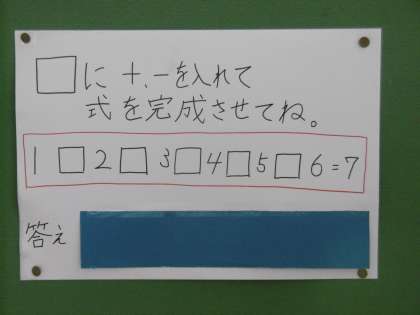 □に+,-を入れて
式を完成させてね。
1□2□3□4□5□6=7
答え